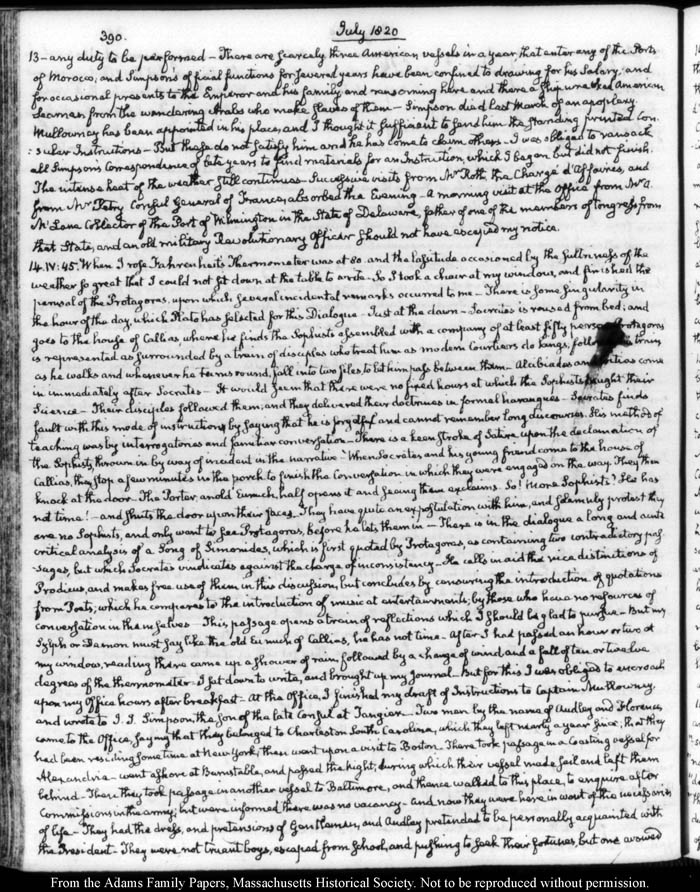 390.
July 1820
13 – any duty to be performed – There are scarcely three American vessels in a year, that enter any of the Ports
of Morocco; and Simpson's official functions for several years have been confined to drawing for his Salary, and
for occasional presents to the Emperor and his family, and ransoming here and there a Shipwrecked American
Seaman, from the wandering Arabs who make slaves of them – Simpson died last March of an apoplexy.
Mullowney has been appointed in his place, and I thought it sufficient to send him the standing printed Con-
:sular Instructions – But these do not satisfy him and he has come to claim others – I was obliged to ransack
all Simpson's Correspondence of late years to find materials for an Instruction, which I began but did not finish.
The intense heat of the weather still continues. Successive visits from Mr Roth the Chargé d'Affaires, and
from Mr Petry Consul General of France, absorbed the Evening – A morning visit at the Office from Mr A.
McLane Collector of the Port of Wilmington in the State of Delaware, father of one of the members of Congress from
that State, and an old military Revolutionary Officer should not have escaped my notice.
14. IV: 45. When I rose Fahrenheit's Thermometer was at 80. and the lassitude occasioned by the sultriness of the
weather so great that I could not sit down at the table to write – So I took a chair at my window, and finished the
perusal of the Protagoras, upon which several incidental remarks occurred to me – There is some singularity in
the hour of the day, which Plato has selected for this Dialogue – Just at the dawn – Socrates is roused from bed; and
goes to the house of Callias, where he finds the Sophists assembled with a company of at least fifty persons Protagoras
is represented as surrounded by a train of disciples who treat him as modern Courtiers do kings, train
as he walks and whenever he turns round, fall into two files to let him pass between them – Alcibiades and Critias come
in immediately after Socrates – It would seem that there were no fixed hours at which the Sophists taught their
Science – Their disciples followed them, and they delivered their doctrines in formal harangues – Socrates finds
fault with this mode of instruction, by saying that he is and cannot remember long discourses. His method of
teaching was by interrogatories and familiar conversation – There is a keen stroke of Satire upon the declamation of
the Sophists, thrown in by way of incident in the narrative – When Socrates and his young friend come to the house of
Callias, they stop a few minutes in the porch to finish the conversation in which they were engaged on the way. They then
knock at the door – The Porter, an old Eunuch, half opens it and seeing them exclaims. So! more Sophists! He has
not time! – and shuts the door upon their faces. They have quite an expostulation with him, and solemnly protest they
are no Sophists, and only want to see Protagoras, before he lets them in – There is in the dialogue a long and acute
critical analysis of a Song of Simonides, which is first quoted by Protagoras, as containing two contradictory pas-
:sages, but which Socrates vindicates against the charge of inconsistency – He calls in aid the nice distinctions of
Prodicus, and makes free use of them in this discussion, but concludes by censuring the introduction of quotations
from Poets; which he compares to the introduction of music at entertainments, by those who have no resources of
conversation in themselves – This passage opens a train of reflections which I should be glad to pursue – But my
Sylph or Daemon must say like the old Eunuch of Callias, he has not time – After I had passed an hour or two at
my window, reading there came up a shower of rain, followed by a change of wind and a fall of ten or twelve
degrees of the thermometer – I sat down to write, and brought up my Journal – But for this I was obliged to encroach
upon my Office hours after breakfast – At the Office, I finished my draft of Instructions to Captain Mullowny,
and wrote to J. I. Simpson, the Son of the late Consul at Tangier – Two men by the names of Audley and Florence,
came to the Office, saying that they belonged to Charleston South Carolina, which they left nearly a year since; that they
had been residing some time at New York, then went upon a visit to Boston – There took passage in a Coasting vessel for
Alexandria – went ashore at Barnstable, and passed the night, during which their vessel made sail and left them
behind – There they took passage in another vessel to Baltimore, and thence walked to this place, to enquire after
Commissions in the army; but were informed there was no vacancy – And now they were here in want of the necessaries
of life – They had the dress, and pretensions of Gentlemen, and Audley pretended to be personally acquainted with
the President – They were not truant boys, escaped from School, and pushing to seek their fortunes, but one
From the Adams Family Papers, Massachusetts Historical Society. Not to be reproduced without permission.